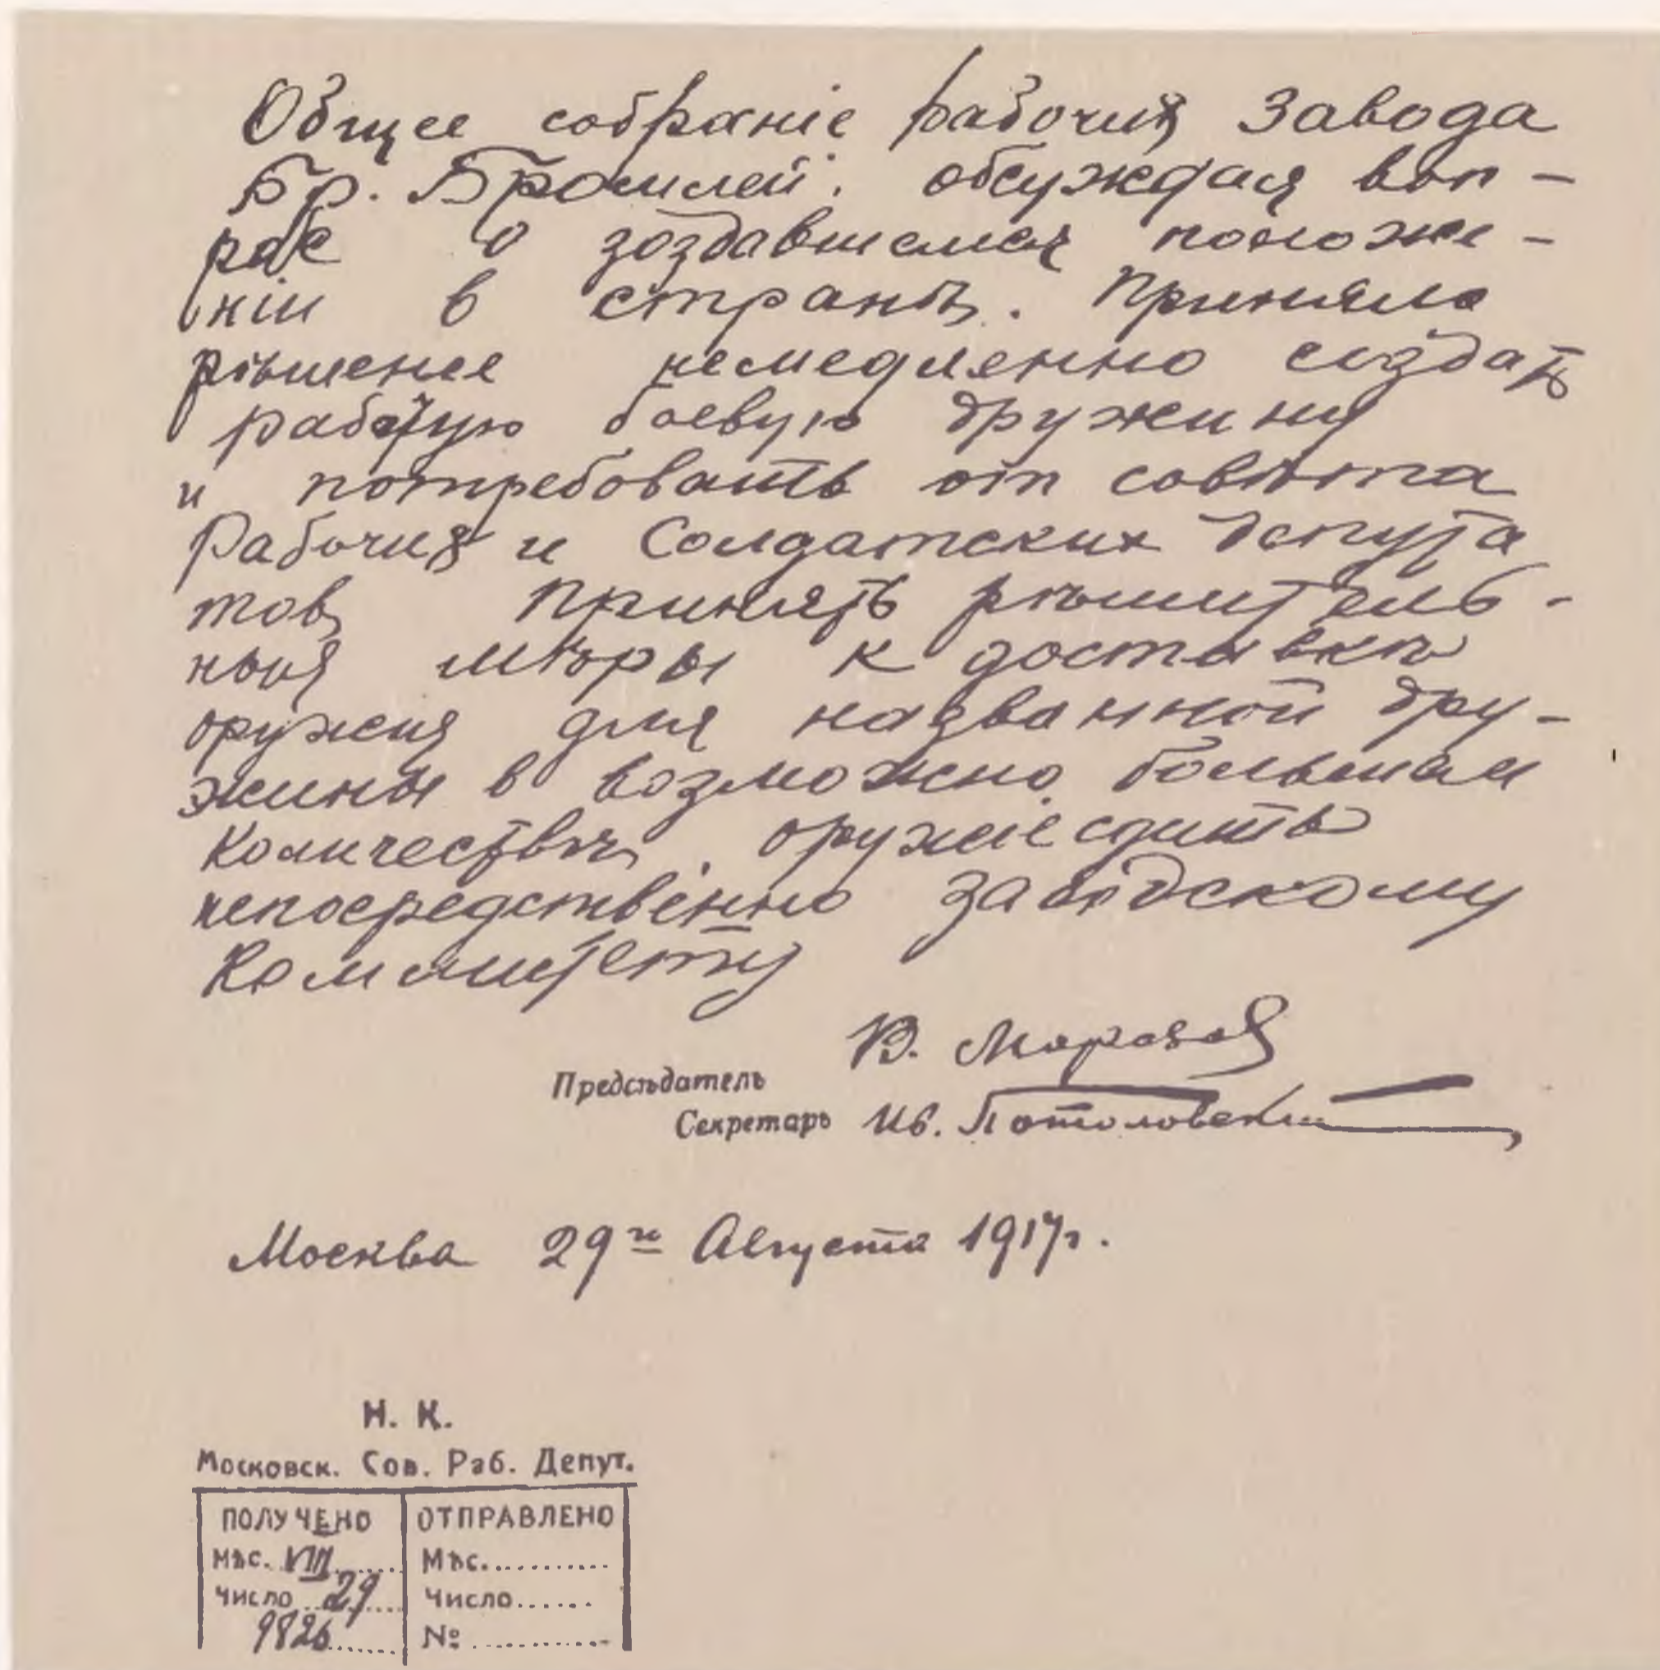 Общее собраніе рабочих Завода
Бр. Бромлей. обсуждая воп-
рос о зоздавшемся положе-
ніи в странѣ. Приняло
рѣшение немедленно создать
рабочую боевую дружину
и потребовать от совѣта
Рабочих и Солдатских депута
тов принять рѣшитель-
ныя мѣры к доставкѣ
оружия для названной дру-
жины в возможно большем
количествѣ, оружие сдать
непосредственно заводскому
Комитету
В. Морозов
Предсѣдатель
Секретарь Ив. Потоловский
Москва 29го Августа 1917г.
Н. К.
Московск. Сов. Раб. Депут.
ПОЛУЧЕНО ОТПРАВЛЕНО
Мѣс. VIII Мѣс.
Число 29 Число
9826 №